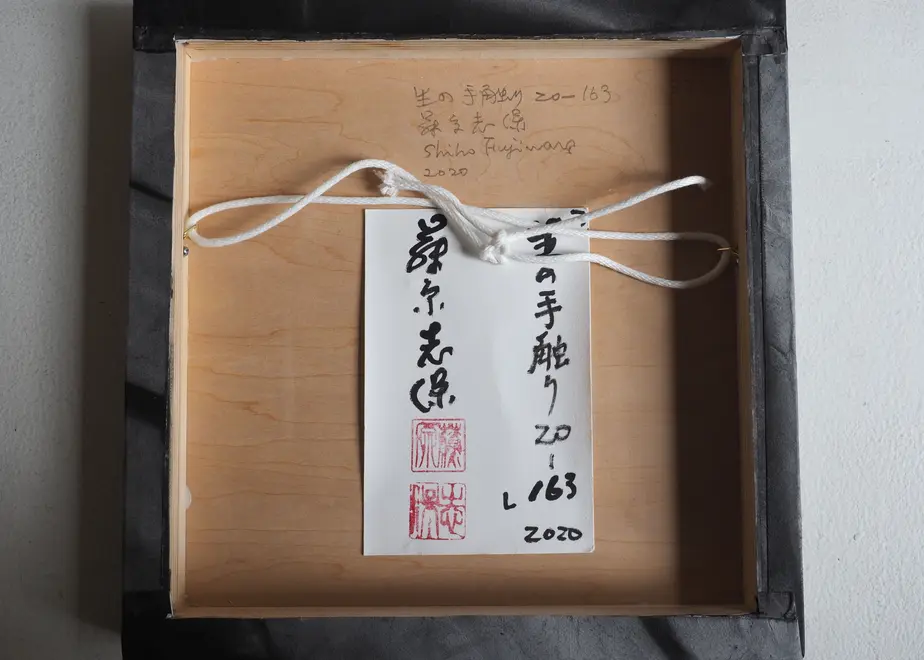 生の手触り 20-163
藤原志保
Shiho Fujiwara
2020
生の手触り 20-163
L
2020
藤原志保
藤原
志保